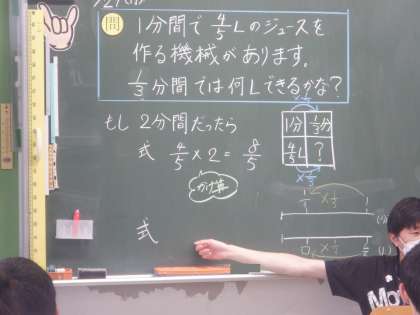 問 1分間で 4/5 Lのジュースを
作る機械があります。
1/3 分間では何Lできるかな?
もし 2分間だったら
式 4/5 × 2 = 8/5
かけ算
1分 1/3分
4/5L ?
×1/3
式
×1/3
(分)
×1/3
(L)
Mov